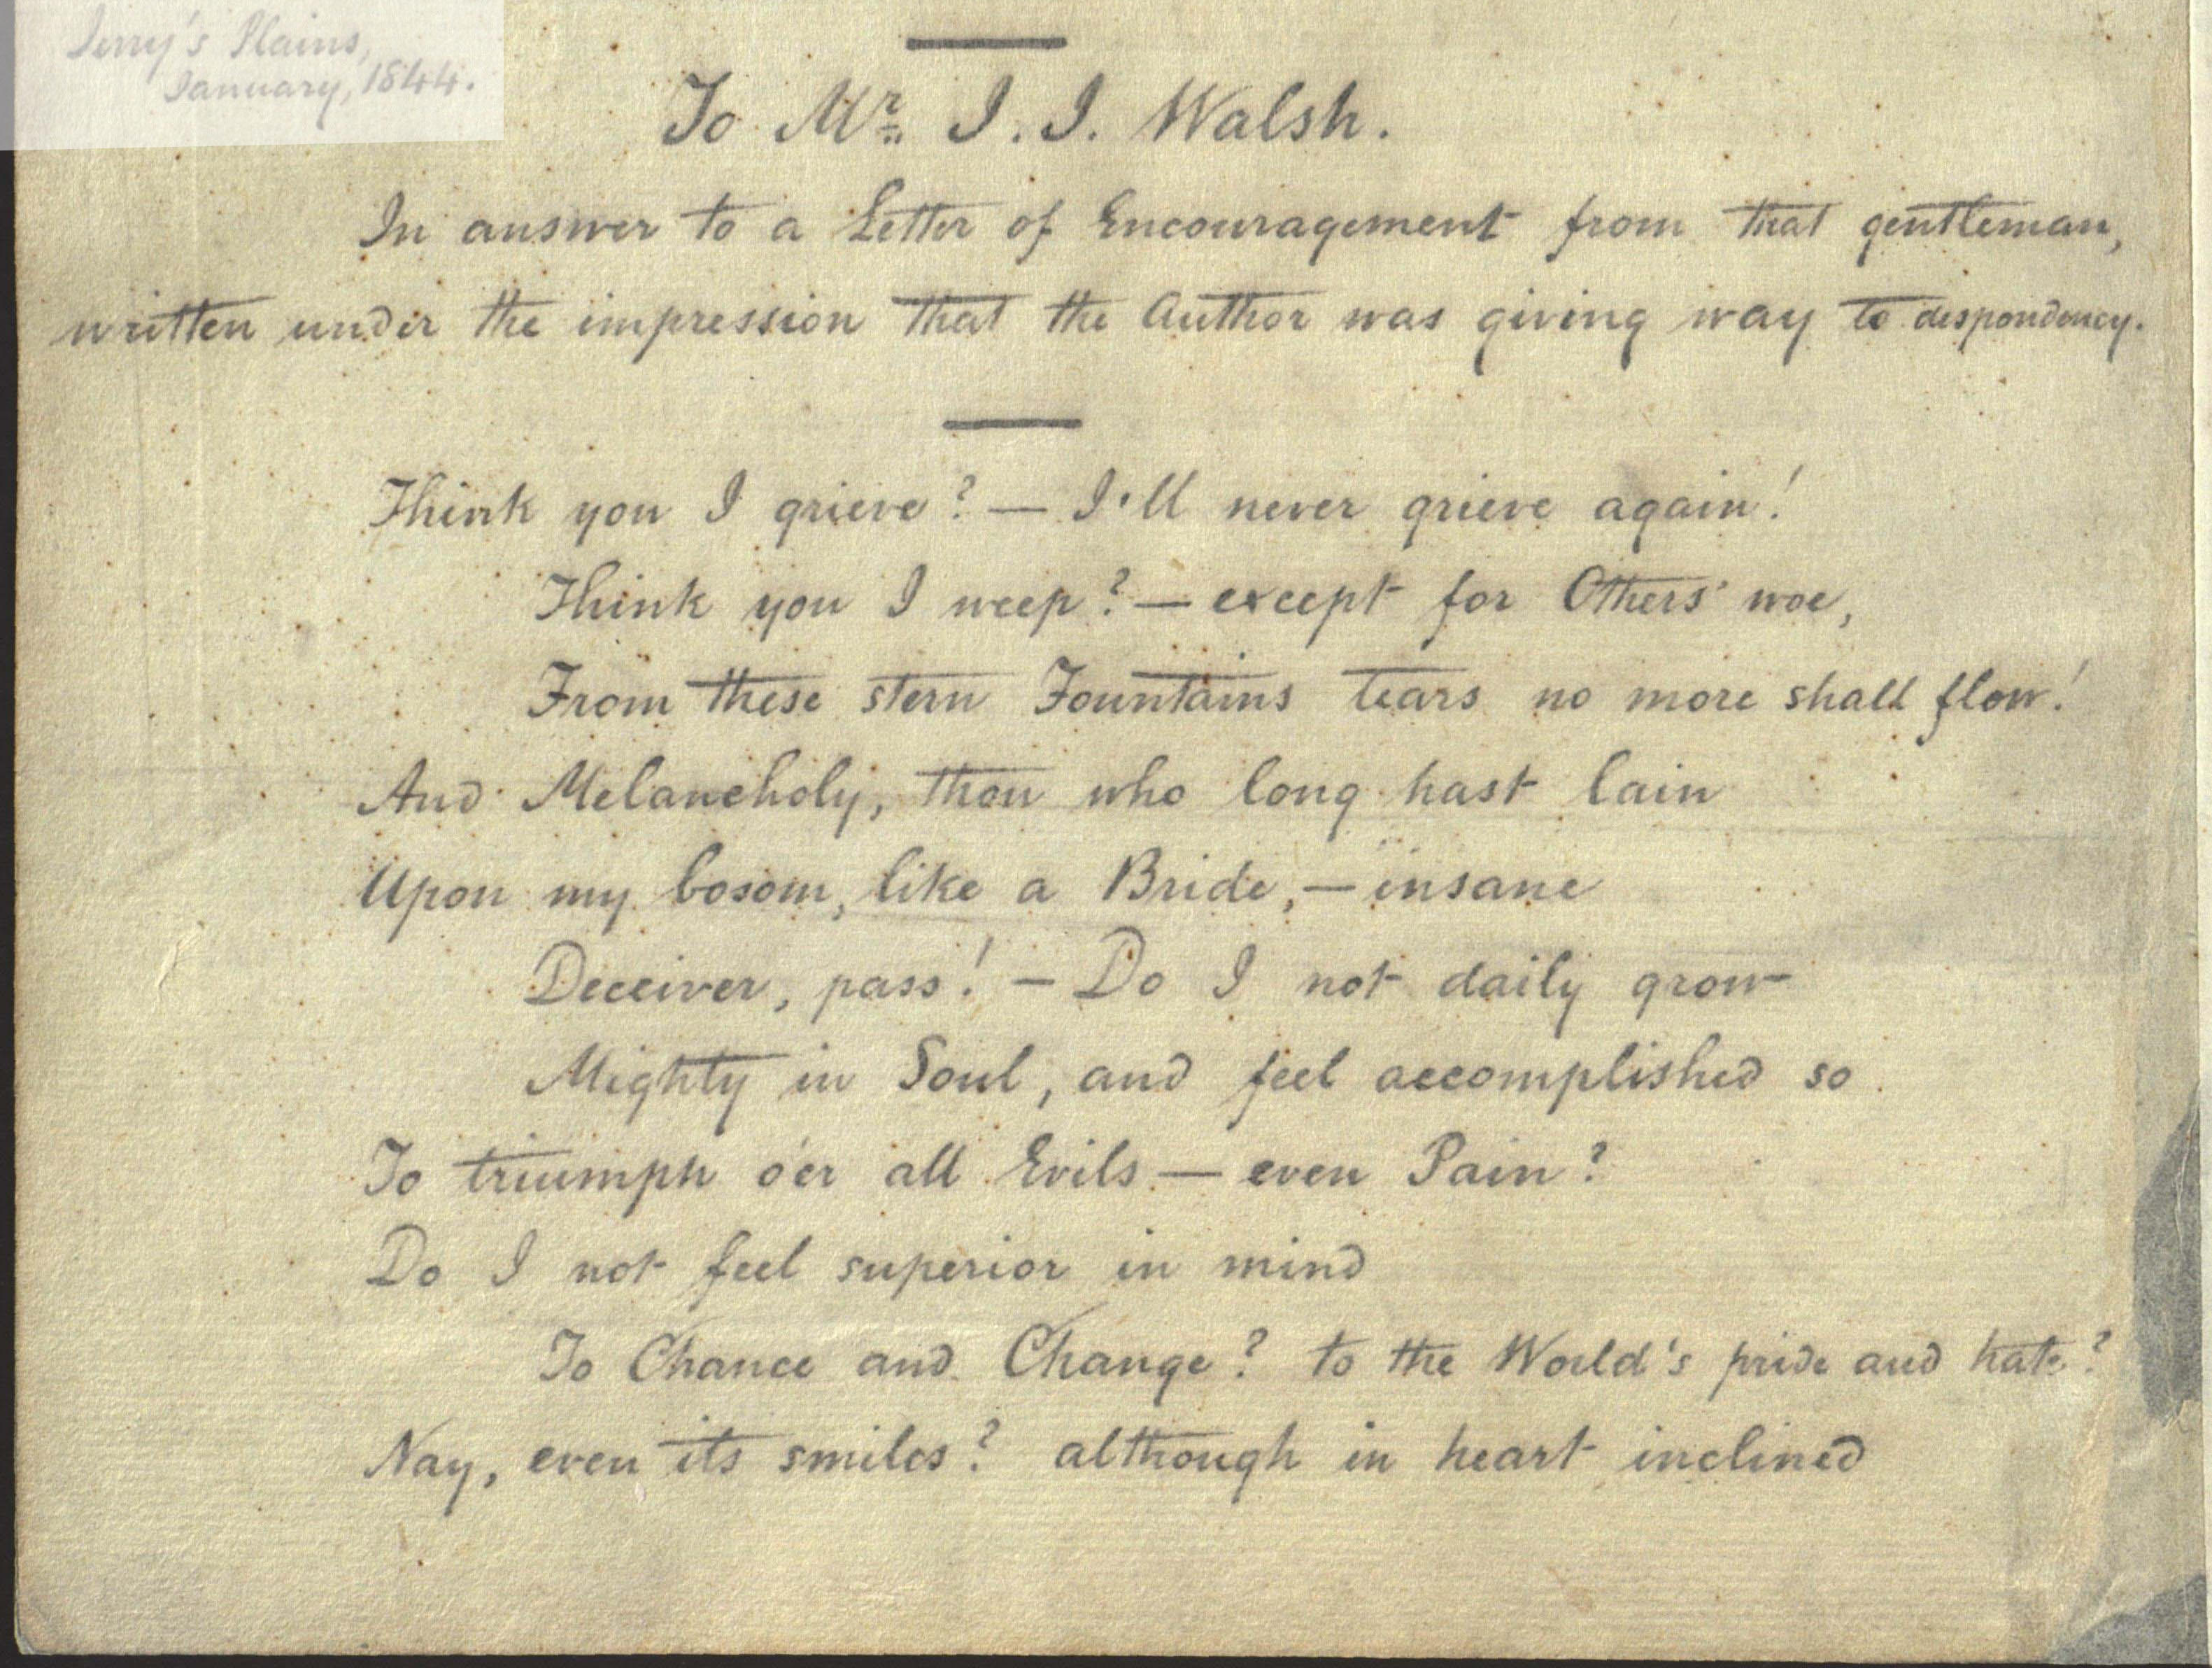 Jerry's Plains,
January, 1844.
To Mr. I. I. Walsh.
In answer to a Letter of Encouragement from that gentleman,
written under the impression that the Author was giving way to despondency.
Think you I grieve? — I'll never grieve again!
Think you I weep? — except for Others' woe,
From these stern Fountains tears no more shall flow!
And Melancholy, thou who long hast lain
Upon my bosom, like a Bride, — insane
Deceiver, pass! — Do I not daily grow
Mighty in Soul, and feel accomplished so
To triumph o'er all Evils — even Pain?
Do I not feel superior in mind
To Chance and Change? to the World's pride and hate?
Nay, even its smiles? although in heart inclined